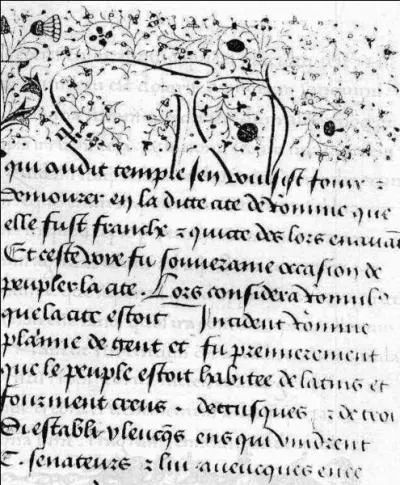 qui audit temple sen voulsist fouir ⁊
demourer en la ditte cite de romme que
elle fust franche ⁊ quicte des lors enauāt
Et ceste voye fu souueraine occasion de
peupler la cite. Lors considera romul⁹
que la cite estoit Incident romme
plaīne de gent et fu premierement
que le peuple estoit habitee de latins et
forment creus. detrusques ⁊ de troi
Si establi yleucq̄s ens qui vindrent
C. senateurs ⁊ lui auecques enee